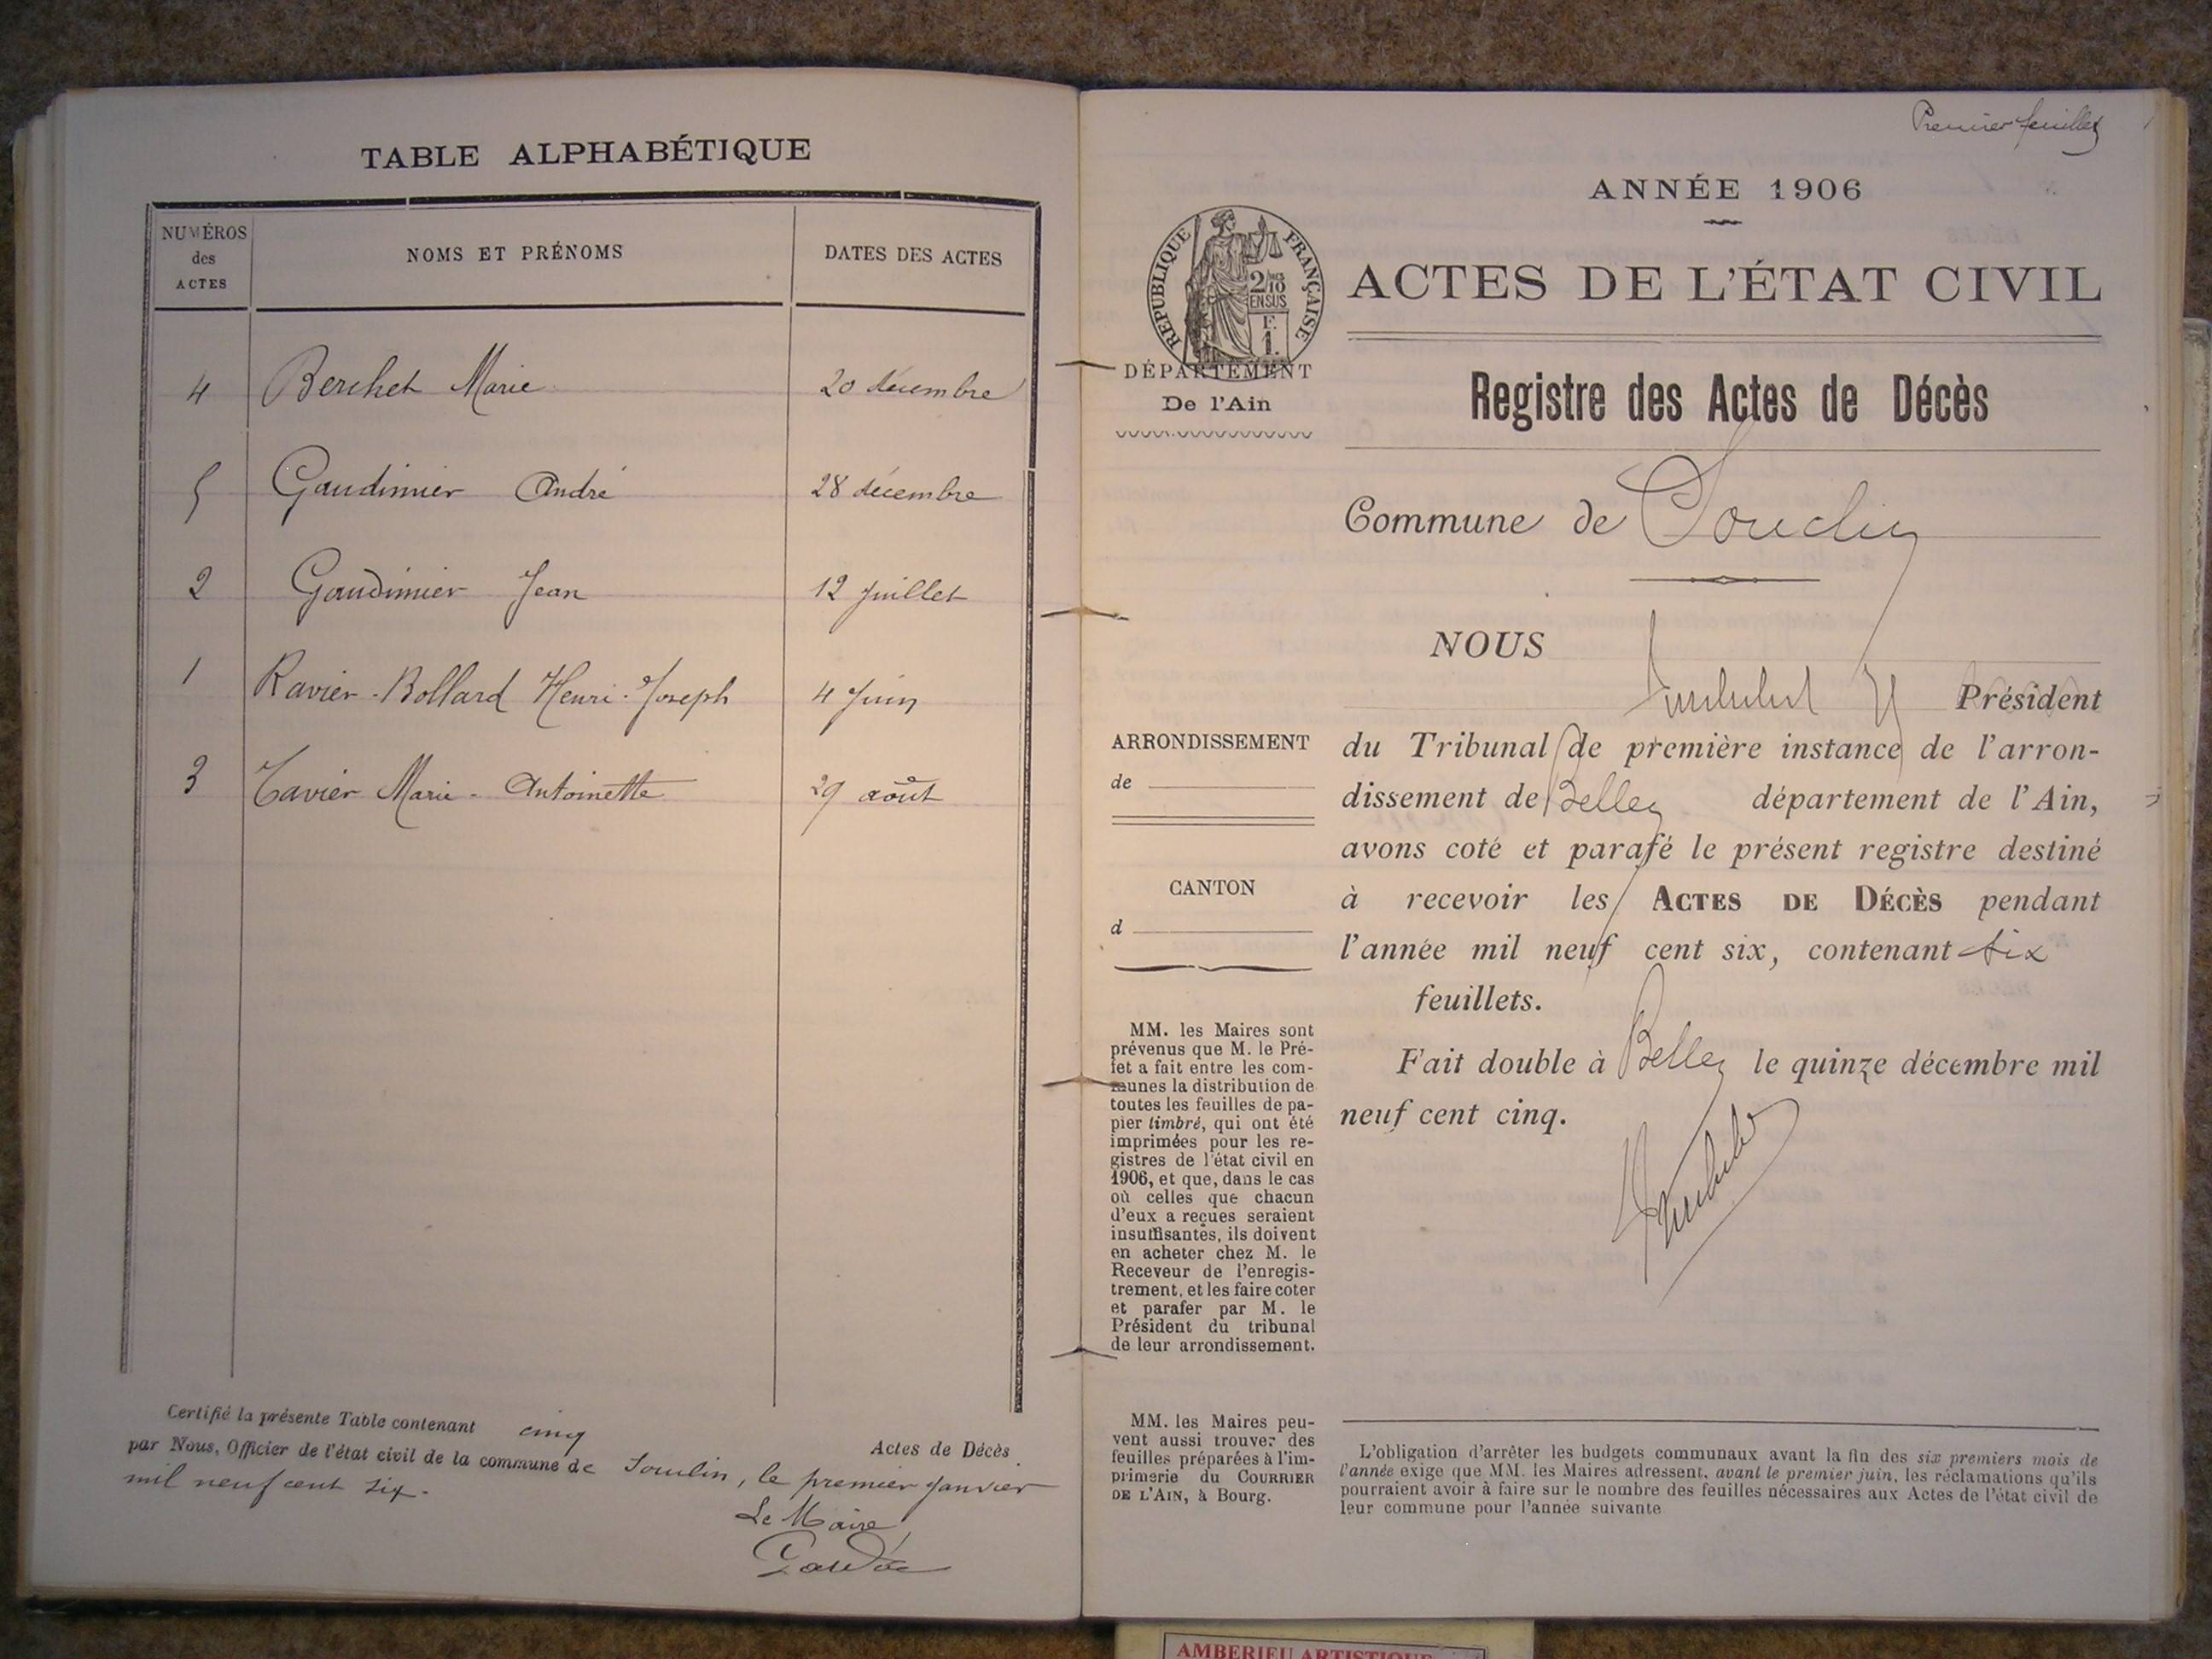 TABLE ALPHABÉTIQUE
NUMÉROS
des
ACTES
NOMS ET PRÉNOMS
DATES DES ACTES
4 Berchet Marie 20 décembre
5 Gaudimier André 28 décembre
2 Gaudimier Jean 12 Juillet
1 Ravier-Bollard Henri-Joseph 4 Juin
3 Tavier Marie-Antoinette 29 août
Certifié la présente Table contenant cinq Actes de Décès
par Nous, Officier de l'état civil de la commune de Souclin, le premier Janvier
mil neuf cent six.
Le Maire,
Premier feuillet
ANNÉE 1906
RÉPUBLIQUE FRANÇAISE
2/10
EN SUS
F.
1.
ACTES DE L'ÉTAT CIVIL
DÉPARTEMENT
De l'Ain
Registre des Actes de Décès
Commune de Souclin
NOUS
Président
ARRONDISSEMENT
de
du Tribunal de première instance de l'arron-
dissement de Belley département de l'Ain,
avons coté et parafé le présent registre destiné
à recevoir les ACTES DE DÉCÈS pendant
l'année mil neuf cent six, contenant six
feuillets.
Fait double à Belley le quinze décembre mil
neuf cent cinq.
CANTON
d
MM. les Maires sont
prévenus que M. le Pré-
fet a fait entre les com-
munes la distribution de
toutes les feuilles de pa-
pier timbré, qui ont été
imprimées pour les re-
gistres de l'état civil en
1906, et que, dans le cas
où celles que chacun
d'eux a reçues seraient
insuffisantes, ils doivent
en acheter chez M. le
Receveur de l'enregis-
trement, et les faire coter
et parafer par M. le
Président du tribunal
de leur arrondissement.
MM. les Maires peu-
vent aussi trouver des
feuilles préparées à l'im-
primerie du COURRIER
DE L'AIN, à Bourg.
L'obligation d'arrêter les budgets communaux avant la fin des six premiers mois de
l'année exige que MM. les Maires adressent, avant le premier juin, les réclamations qu'ils
pourraient avoir à faire sur le nombre des feuilles nécessaires aux Actes de l'état civil de
leur commune pour l'année suivante
AMBERIEU ARTISTIQUE